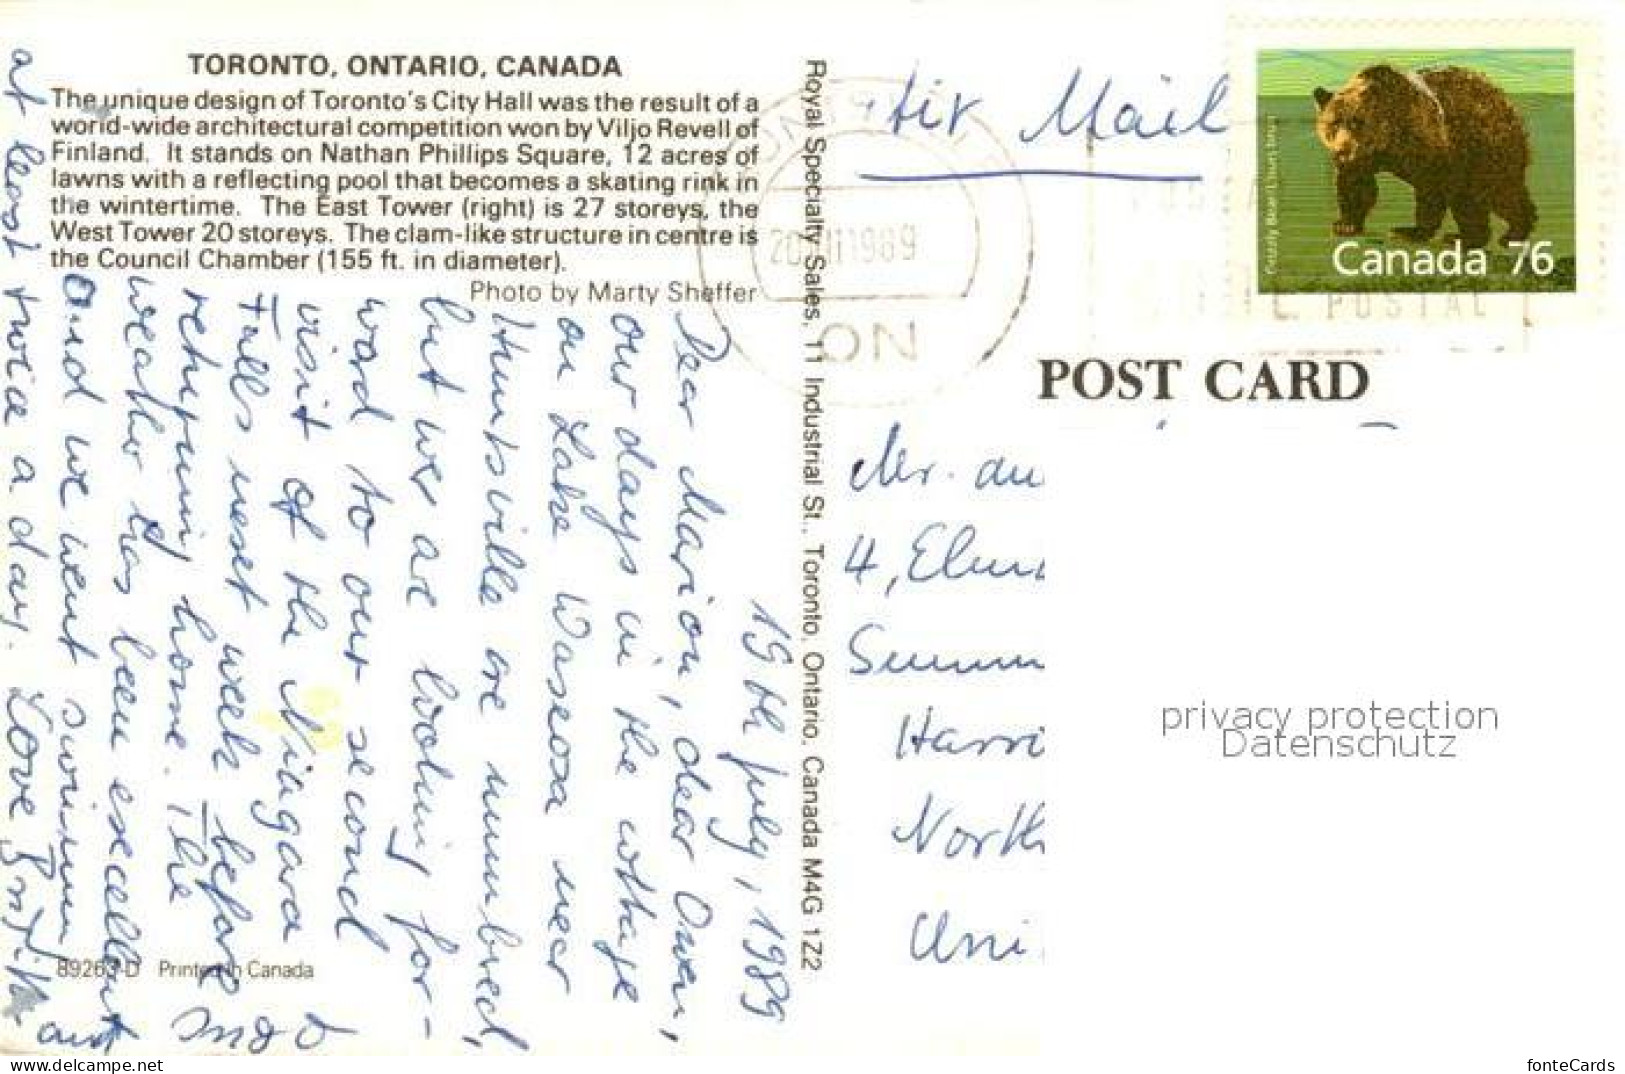 TORONTO, ONTARIO, CANADA
The unique design of Toronto's City Hall was the result of a
world-wide architectural competition won by Viljo Revell of
Finland. It stands on Nathan Phillips Square, 12 acres of
lawns with a reflecting pool that becomes a skating rink in
the wintertime. The East Tower (right) is 27 storeys, the
West Tower 20 storeys. The clam-like structure in centre is
the Council Chamber (155 ft. in diameter).
Photo by Marty Sheffer
19th July, 1989
Dear Marion, dear Owen,
our days in the cottage
on Lake Waseosa near
Huntsville are numbered,
but we are looking for-
ward to our second
visit of the Niagara
Falls next week before
returning home. The
weather has been excellent
and we went swimming
at least twice a day. Love
and
89263-D Printed in Canada
Royal Specialty Sales, 11 Industrial St., Toronto, Ontario, Canada M4G 1Z2
Air Mail
1989
ON
POSTAL
Grizzly Bear
Canada 76
POST CARD
Mr. an
4, Elm
Summ
Harr
North
Uni
privacy protection
Datenschutz
delcampe.net
fonteCards